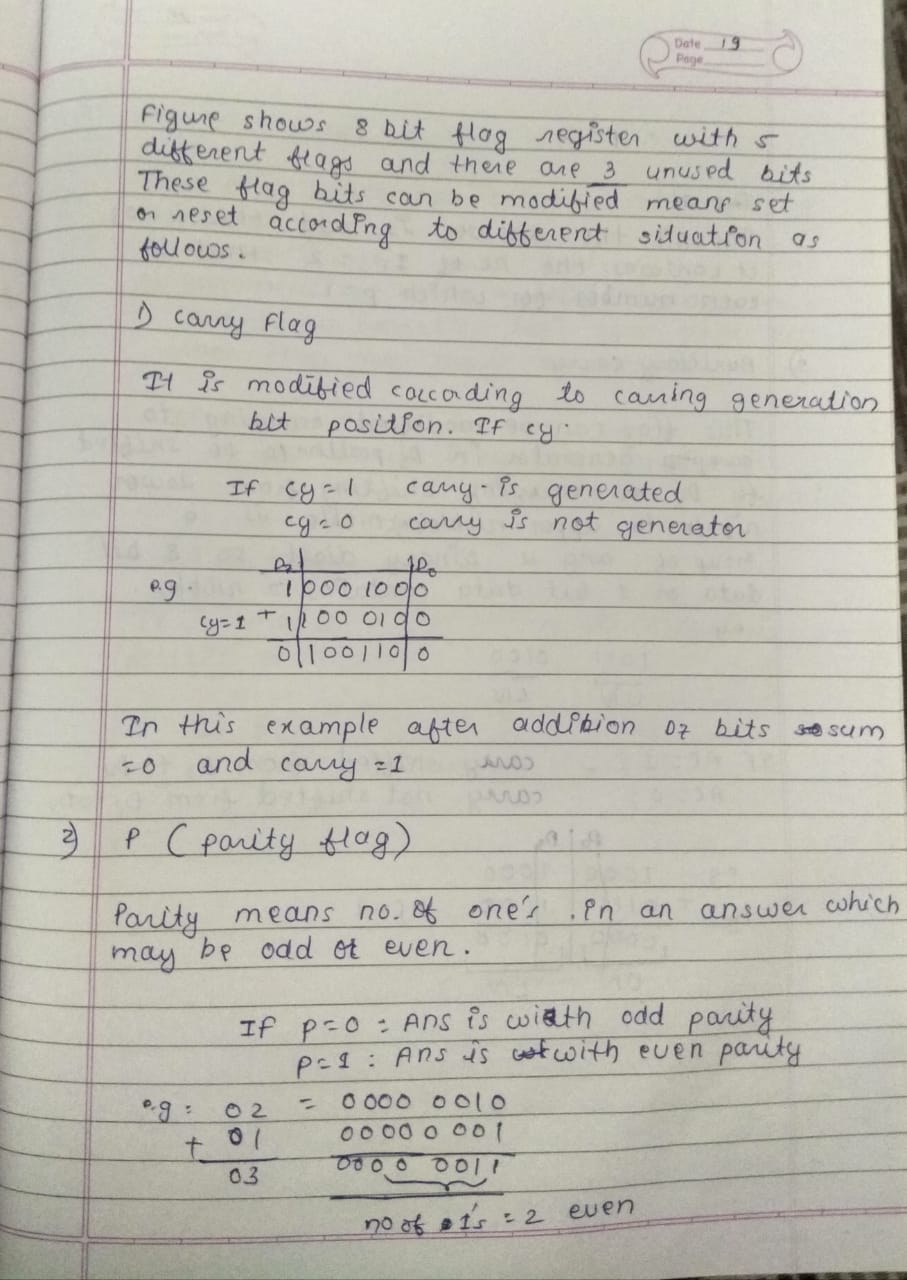 Date 19
Page
Figure shows 8 bit flag register with 5
different flags and there are 3 unused bits
These flag bits can be modified means set
or reset according to different situation as
follows.
1) carry Flag
It is modified caccoding to carring generation
bit position. If cy.
If cy=1 carry is generated
cy=0 carry is not generator
D7 D0
e.g. 1 0001000
cy=1 + 1 100 0100
0 1001100
In this example after addition D7 bits sum
=0 and carry =1
2) P (parity flag)
Parity means no. of one's in an answer which
may be odd or even.
If p=0 : Ans is with odd parity
p=1 : Ans is with even parity
e.g : 02 = 0000 0010
+ 01 00000 001
03 0000 0011
no of 1's = 2 even